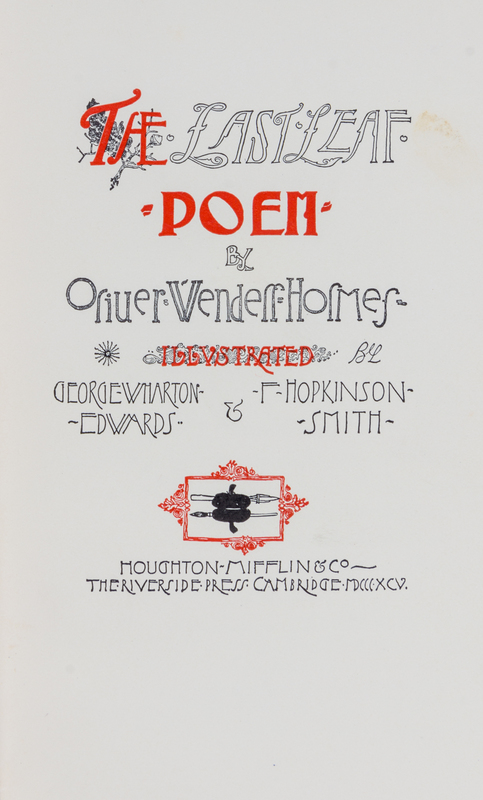 THE·LAST·LEAF·
·POEM·
BY
Oliver·Wendell·Holmes·
ILLVSTRATED BY
GEORGE·WHARTON· & ·F·HOPKINSON·
~EDWARDS·· ~SMITH~
HOUGHTON·MIFFLIN & CO~
THE·RIVERSIDE·PRESS·CAMBRIDGE·MDCCCXCV.